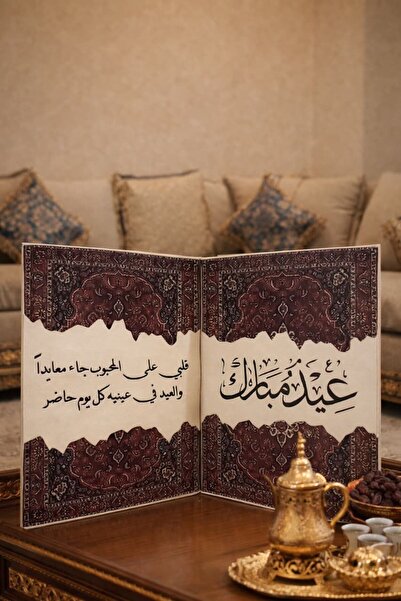 عِيدٌ مُبَارَك
قلبي على المحبوب جاء معايداً
والعيد في عينيه كل يوم حاضر